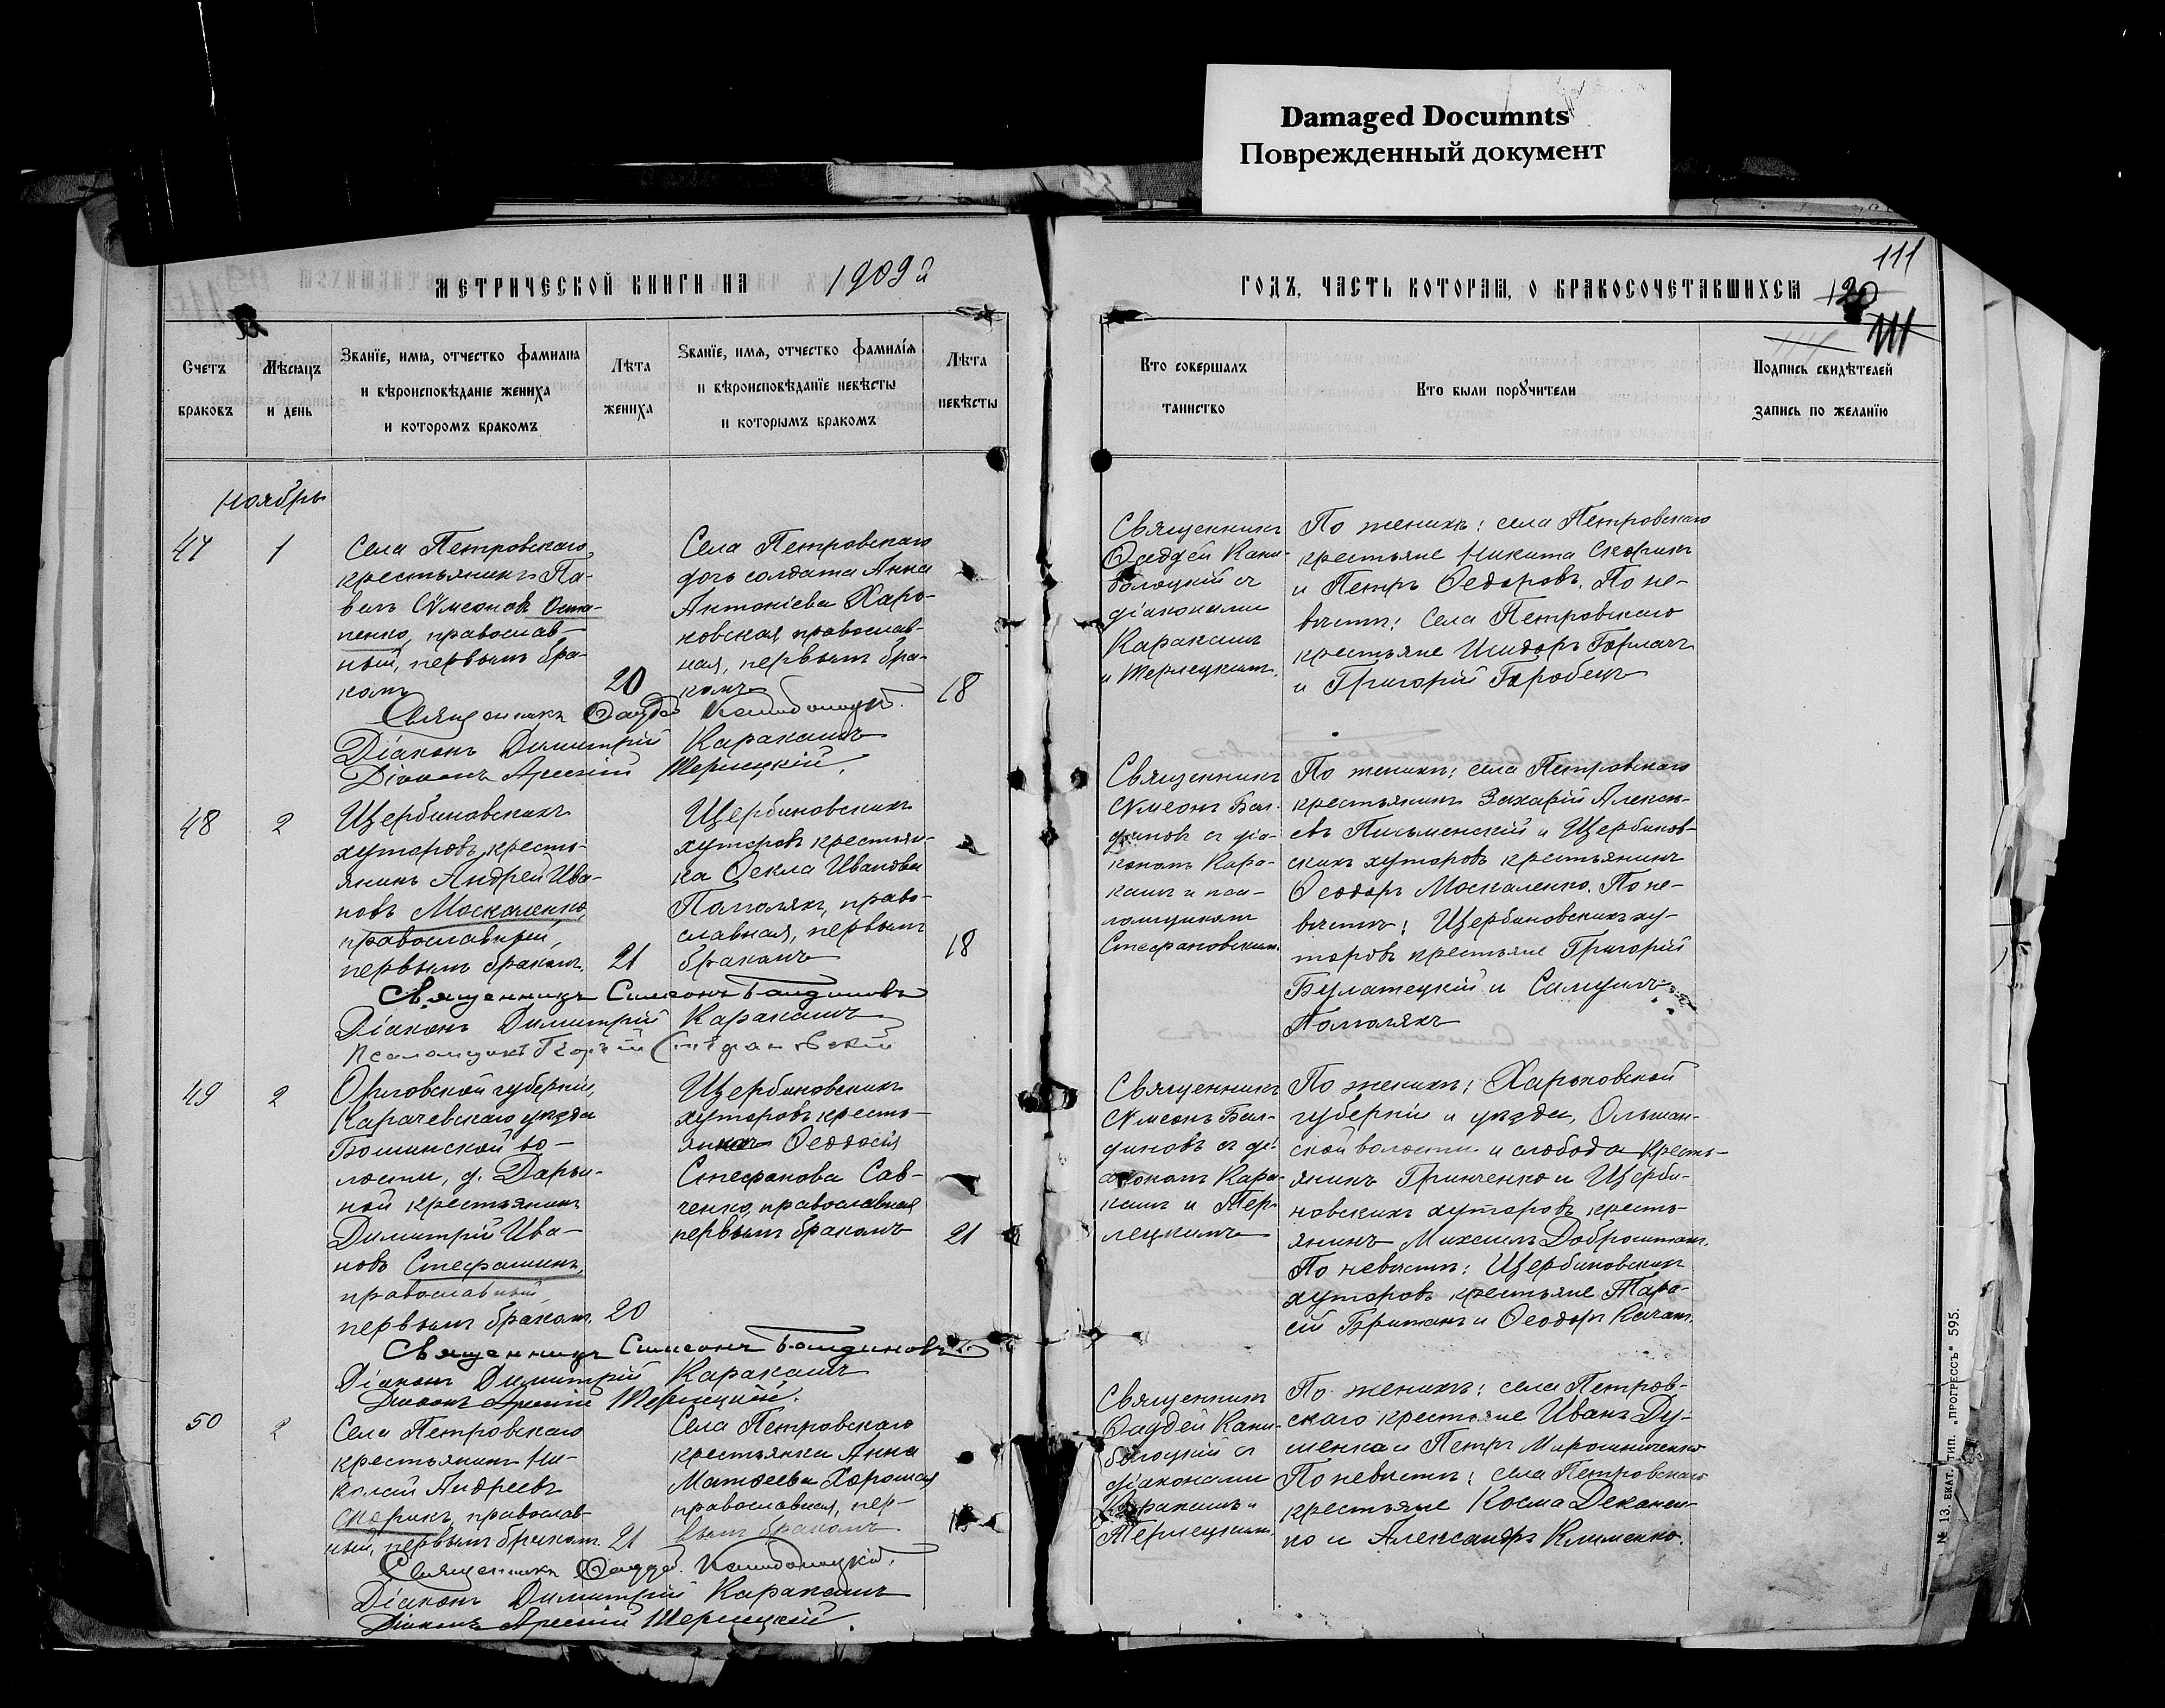 Damaged Documnts
Поврежденный документ
111
МЕТРИЧЕСКОЙ КНИГИ НА 1909й
ГОДЪ, ЧАСТЬ ВТОРАЯ, О БРАКОСОЧЕТАВШИХСЯ 120
111
Счетъ браковъ
Мѣсяцъ и день
Званїе, имя, отчество фамилїя и вѣроисповѣданїе жениха и которомъ бракомъ
Лѣта жениха
Званїе, имя, отчество фамилїя и вѣроисповѣданїе невѣсты и которымъ бракомъ
Лѣта невѣсты
Кто совершалъ таинство
Кто были порꙋчители
Подпись свидѣтелей запись по желанїю
Ноябрь
47
1
Села Петровскаго,
крестьянинъ Па-
велъ Сѵмеоновъ Оста-
пенко, православ-
ный, первымъ бра-
комъ
20
Села Петровскаго
дочь солдата Анна
Антоніева Харь-
ковская, православ-
ная, первымъ бра-
комъ
18
Священникъ
Ѳаддей Кани-
болоцкій съ
діаконами
Каракашъ
и Терлецкимъ.
По женихѣ: села Петровскаго
крестьяне Никита Скорикъ
и Петръ Ѳедоровъ. По не-
вѣстѣ: Села Петровскаго
крестьяне Исидоръ Горлачъ
и Григорій Горобецъ
Священникъ Ѳаддей Каниболоцкій.
Діаконъ Димитрій Каракашъ
Діаконъ Арсеній Терлецкій.
48
2
Щербиновскихъ
хуторовъ, кресть-
янинъ Андрей Ива-
новъ Москаленко,
православный,
первымъ бракомъ.
21
Щербиновскихъ
хуторовъ крестьян-
ка Ѳекла Иванова
Помолякъ, право-
славная, первымъ
бракомъ
18
Священникъ
Сѵмеонъ Бал-
диновъ съ діа-
кономъ Кара-
кашъ и пса-
ломщикомъ
Стефановскимъ.
По женихѣ: села Петровскаго
крестьянинъ Захарій Алексѣ-
евъ Письменскій и Щербинов-
скихъ хуторовъ крестьянинъ
Ѳеодоръ Москаленко. По не-
вѣстѣ: Щербиновскихъ ху-
торовъ крестьяне Григорій
Булатецкій и Самуилъ
Помолякъ
Священникъ Симеонъ Балдиновъ
Діаконъ Димитрій Каракашъ
Псаломщикъ Георгій Стефановскій
49
2
Орловской губерніи,
Карачевскаго уѣзда
Бошинской во-
лости, д. Дарьи-
ной крестьянинъ
Димитрій Ива-
новъ Стефашинъ,
православный,
первымъ бракомъ.
20
Щербиновскихъ
хуторовъ кресть-
янка Ѳеодосія
Стефанова Сав-
ченко, православная
первымъ бракомъ
21
Священникъ
Сѵмеонъ Бал-
диновъ съ ді-
акономъ Кара-
кашъ и Тер-
лецкимъ
По женихѣ: Харьковской
губерніи и уѣзда, Ольшан-
ской волости и слободы кресть-
янинъ Гринченко и Щерби-
новскихъ хуторовъ кресть-
янинъ Михаилъ Доброштанъ.
По невѣстѣ: Щербиновскихъ
хуторовъ крестьяне Тара-
сій Британъ и Ѳеодоръ Качанъ.
Священникъ Симеонъ Балдиновъ
Діаконъ Димитрій Каракашъ
Діаконъ Арсеній Терлецкій.
50
2
Села Петровскаго
крестьянинъ Ни-
колай Андреевъ
Скорикъ, православ-
ный, первымъ бракомъ.
21
Села Петровскаго
крестьянка Анна
Матѳеева Хорошая
православная, пер-
вымъ бракомъ
18
Священникъ
Ѳаддей Кани-
болоцкій съ
діаконами
Каракашъ и
Терлецкимъ.
По женихѣ: села Петров-
скаго крестьяне Иванъ Ду-
менко и Петръ Мирошниченко
По невѣстѣ: села Петровскаго
крестьяне Косма Деканен-
ко и Александръ Клименко.
Священникъ Ѳаддей Каниболоцкій.
Діаконъ Димитрій Каракашъ
Діаконъ Арсеній Терлецкій.
№ 13. ЕКАТ. ТИП. „ПРОГРЕССЪ“ 595.